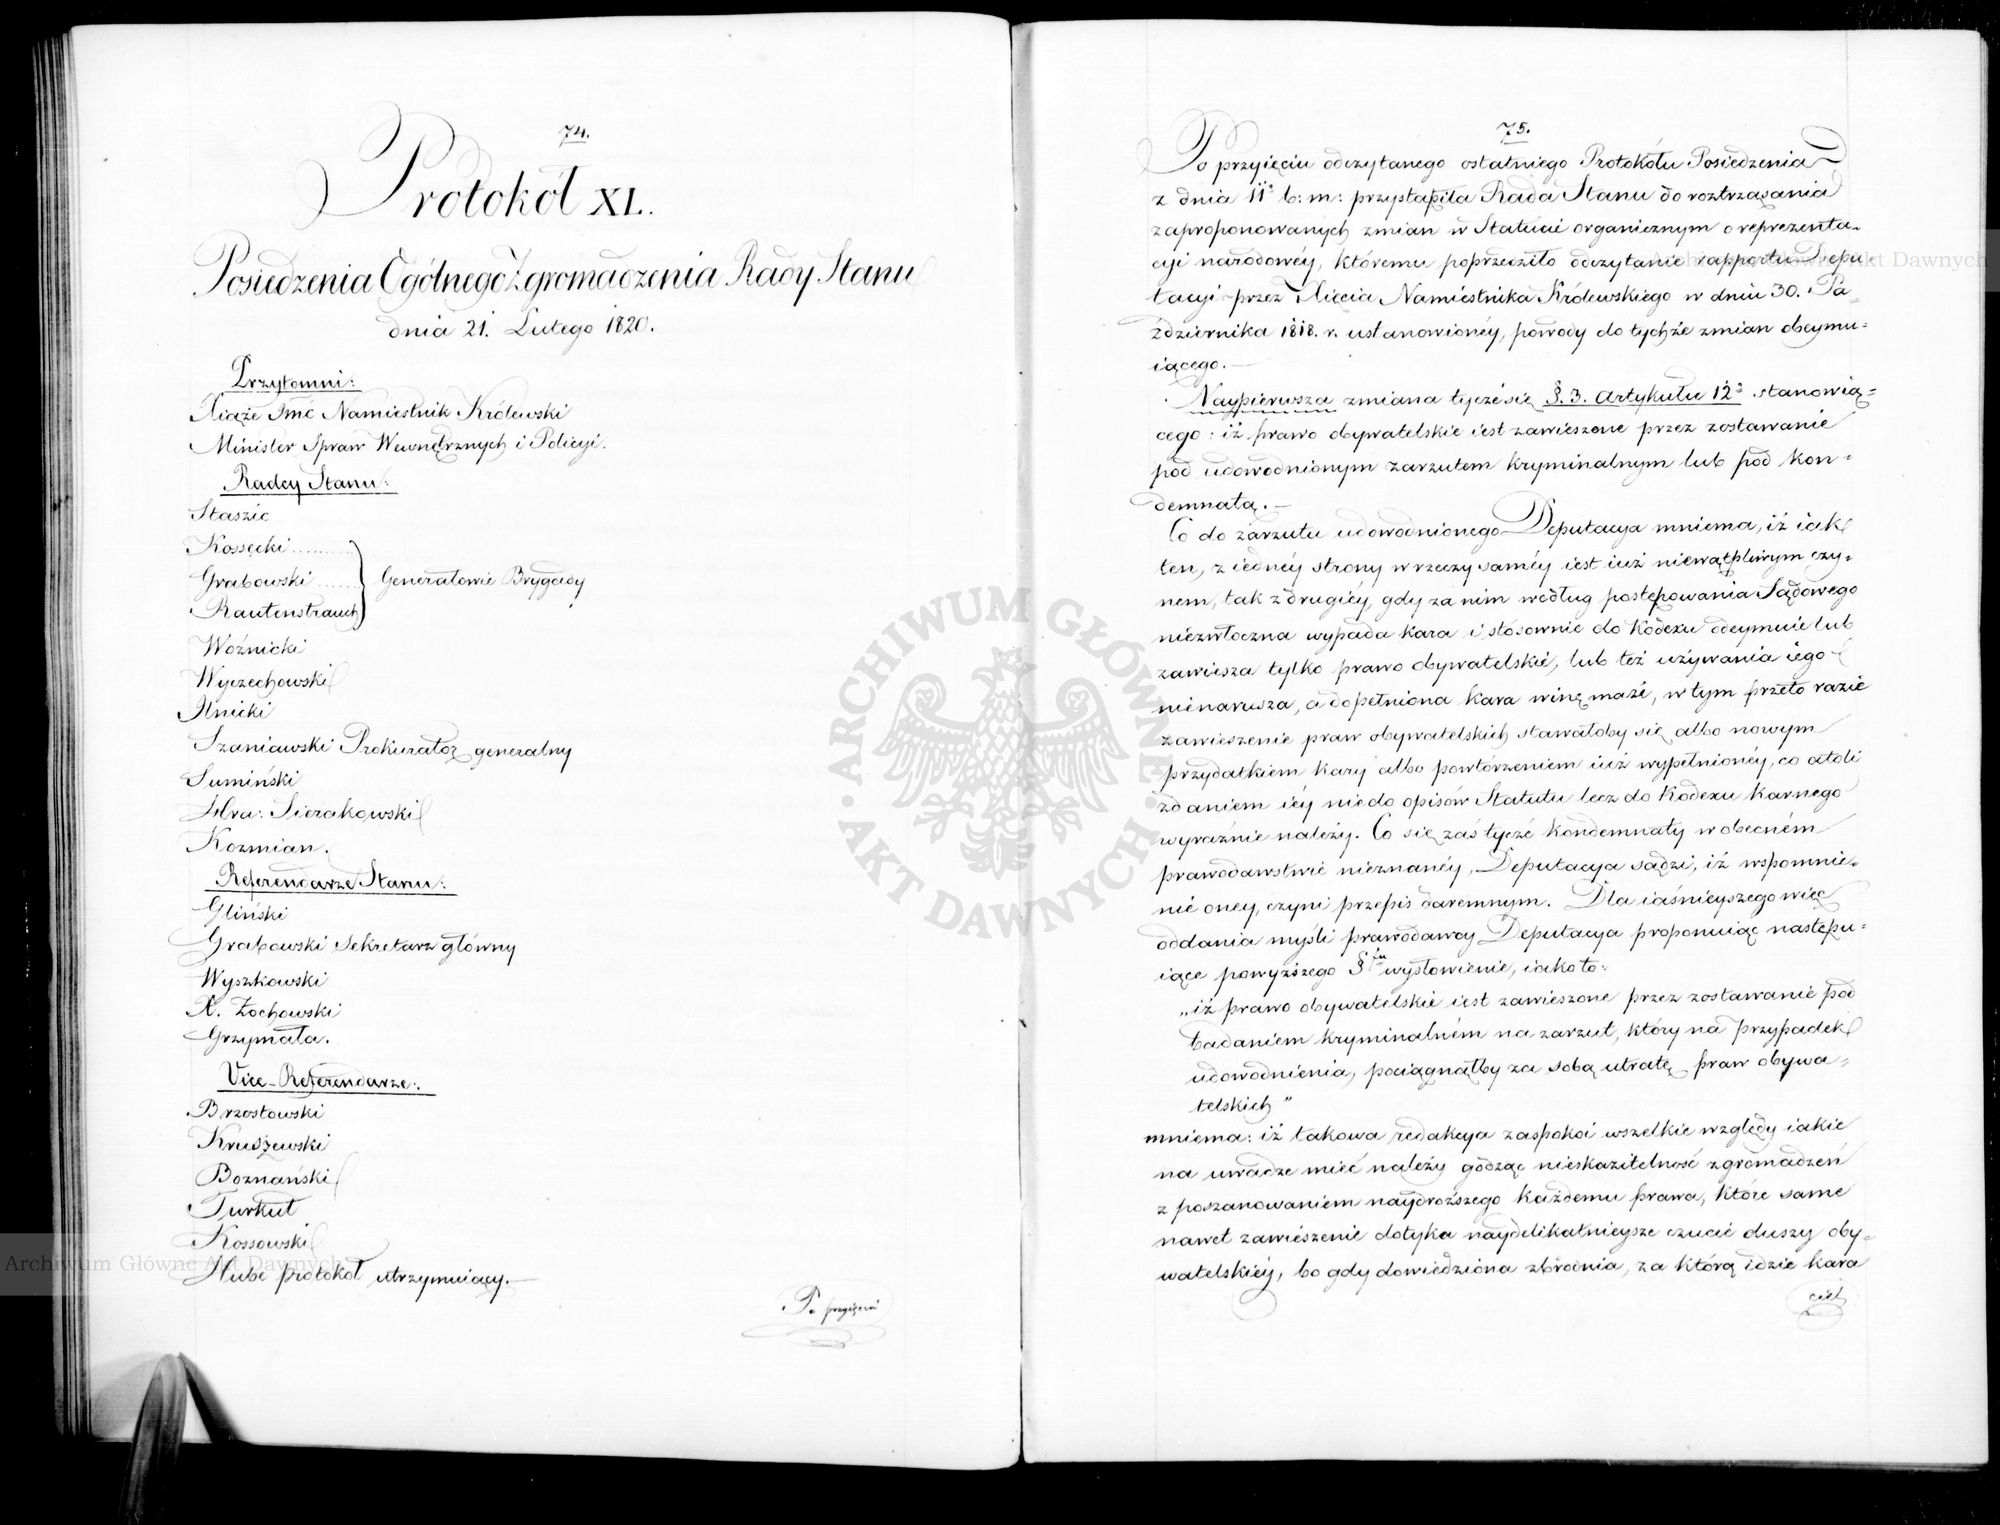 74.
Protokół XL.
Posiedzenia Ogólnego Zgromadzenia Rady Stanu
dnia 21. Lutego 1820.
Przytomni:
Xiąże Jmć Namiestnik Królewski
Minister Spraw Wewnętrznych i Policyi.
Radcy Stanu:
Staszic
Kossecki
Grabowski
Rautenstrauch
Generałowie Brygady
Woźnicki
Wyczechowski
Ilnicki
Szaniawski Prokurator generalny
Sumiński
Hra: Sierakowski
Kozmian.
Referendarze Stanu:
Gliński
Grabowski Sekretarz główny
Wyszkowski
X. Żochowski
Grzymała.
Vice-Referendarze:
Brzostowski
Kruszewski
Boznański
Turkuł
Kossowski
Hube protokół utrzymuiący.—
Po przyięciu
75.
Po przyięciu odczytanego ostatniego Protokółu Posiedzenia
z dnia 11º b: m: przystąpiła Rada Stanu do roztrząsania
zaproponowanych zmian w Statucie organicznym o reprezenta-
cyi narodowéy, któremu poprzedziło odczytanie rapportu Depu-
tacyi przez Xięcia Namiestnika Królewskiego w dniu 30. Pa-
ździernika 1818. r. ustanowionéy, powody do tychże zmian obeymu-
iącego.—
Naypierwsza zmiana tyczé się §. 3. Artykułu 12º stanowią-
cego: iż prawo obywatelskie iest zawieszone przez zostawanie
pod udowodnionym zarzutem kryminalnym lub pod kon-
demnatą.—
Co do zarzutu udowodnionego Deputacya mniema, iż iak
ten, z iednéy strony w rzeczy saméy iest iuż niewątpliwym czy-
nem, tak z drugiéy, gdy za nim według postępowania Sądowego
niezwłoczna wypada kara i stósownie do Kodexu odeymuie lub
zawiesza tylko prawo obywatelskie, lub też używania iego
nienarusza, a dopełniona kara winę maże, w tym przeto razie
zawieszenie praw obywatelskich stawałoby się albo nowym
przydatkiem kary albo powtórzeniem iuż wypełnionéy, co atoli
zdaniem iéy nie do opisów Statutu lecz do Kodexu karnego
wyraźnie należy. Co się zaś tyczé kondemnaty w obecném
prawodawstwie nieznanéy, Deputacya sądzi, iż wspomnie-
nie oney, czyni przepis daremnym. Dla iaśnieyszego więc
oddania myśli prawodawcy Deputacya proponuiąc następu-
iące powyższego §fu wysłowienie, iako to:
„iż prawo obywatelskie iest zawieszone przez zostawanie pod
badaniem kryminalném na zarzut, który na przypadek
udowodnienia, pociągnąłby za sobą utratę praw obywa-
telskich"
mniema: iż takowa redakcya zaspokoi wszelkie względy iakie
na uwadze mieć należy godząc nieskazitelność zgromadzeń
z poszanowaniem naydroższego każdemu prawa, które same
nawet zawieszenie dotyka naydelikatnieysze czucie duszy oby-
watelskiéy, bo gdy dowiedziona zbrodnia, za którą idzie kara